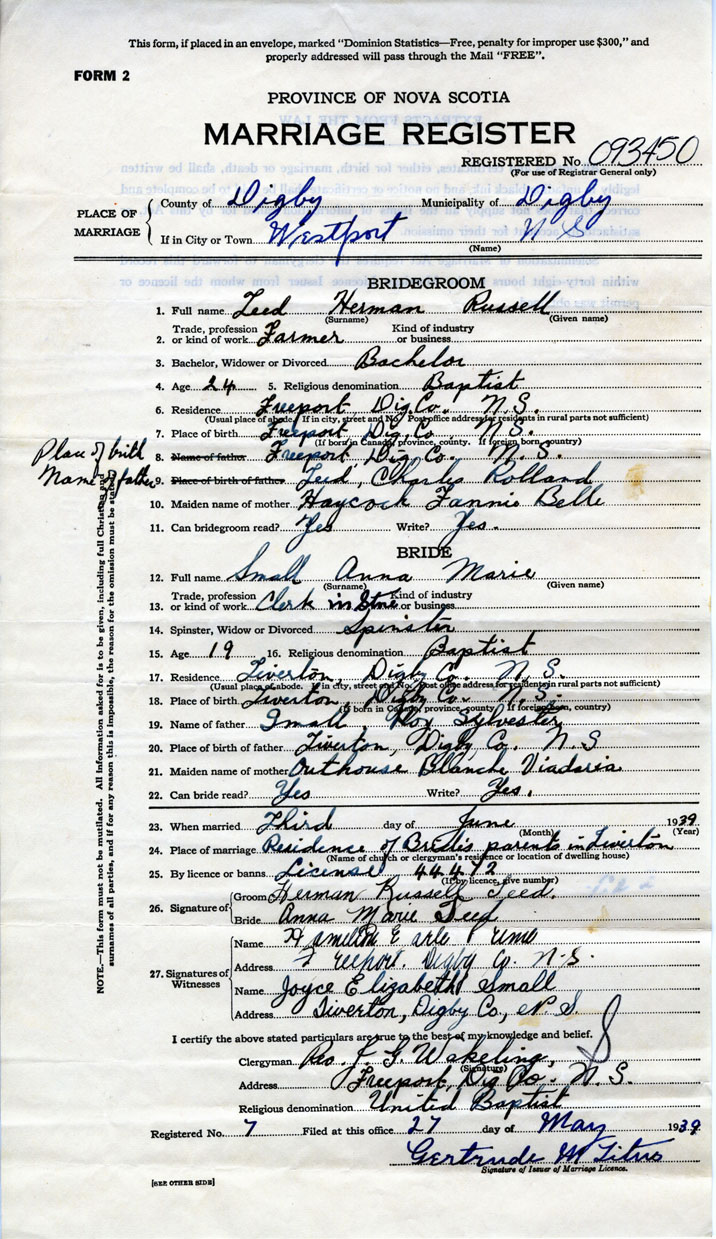 This form, if placed in an envelope, marked "Dominion Statistics—Free, penalty for improper use $300," and
properly addressed will pass through the Mail "FREE".
FORM 2
PROVINCE OF NOVA SCOTIA
MARRIAGE REGISTER
REGISTERED No. 093450
(For use of Registrar General only)
PLACE OF MARRIAGE
County of Digby Municipality of Digby
If in City or Town Westport N S
(Name)
BRIDEGROOM
1. Full name Teed Herman Russell
(Surname) (Given name)
2. Trade, profession or kind of work Farmer Kind of industry or business
3. Bachelor, Widower or Divorced Bachelor
4. Age 24 5. Religious denomination Baptist
6. Residence Freeport, Dig. Co. N. S.
(Usual place of abode. If in city, street and No. Post office address for residents in rural parts not sufficient)
7. Place of birth Freeport, Dig. Co. N. S.
(If born in Canada, province, county. If foreign born, country)
Place of birth
8. Name of father Freeport, Dig. Co. N. S.
Name of father
9. Place of birth of father Teed, Charles Rolland
10. Maiden name of mother Haycock Fannie Belle
11. Can bridegroom read? Yes Write? Yes.
BRIDE
12. Full name Small Anna Marie
(Surname) (Given name)
13. Trade, profession or kind of work Clerk in Store Kind of industry or business
14. Spinster, Widow or Divorced Spinster
15. Age 19 16. Religious denomination Baptist
17. Residence Tiverton, Digby Co. N. S.
(Usual place of abode. If in city, street and No. Post office address for residents in rural parts not sufficient)
18. Place of birth Tiverton, Digby Co. N. S.
(If born in Canada, province, county. If foreign born, country)
19. Name of father Small Roy Sylvester
20. Place of birth of father Tiverton, Digby Co. N. S
21. Maiden name of mother Outhouse Blanche
22. Can bride read? Yes Write? Yes.
23. When married Third day of June 1939
(Month) (Year)
24. Place of marriage Residence of parents in Tiverton
(Name of church or clergyman's residence or location of dwelling house)
25. By licence or banns License 44472
(If by licence, give number)
26. Signature of
Groom Herman Russell Teed.
Bride Anna Marie Teed
27. Signatures of Witnesses
Name
Address Freeport. Digby Co. N. S.
Name Joyce Elizabeth Small
Address Tiverton, Digby Co, N. S.
I certify the above stated particulars are true to the best of my knowledge and belief.
Clergyman Rev. J. G. Wakeling,
(Signature)
Address Freeport, Dig. Co. N. S.
Religious denomination United Baptist
Registered No. 7 Filed at this office 27 day of May 1939
Gertrude M Titus
Signature of Issuer of Marriage Licence.
[SEE OTHER SIDE]
NOTE.—This form must not be mutilated. All information asked for is to be given, including full Christian and
surnames of all parties, and if for any reason this is impossible, the reason for the omission must be stated